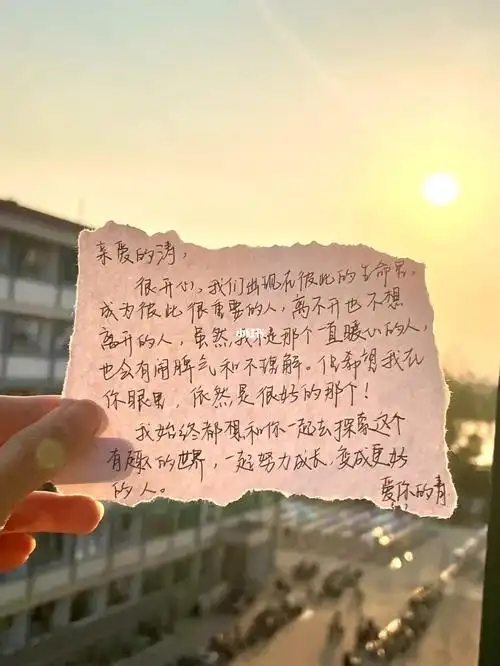 亲爱的涛,
很开心,我们出现在彼此的生命里,
成为彼此很重要的人,离不开也不想
离开的人,虽然我不是那个一直暖心的人,
也会有闹脾气和不理解。但希望我在
你眼里,依然是很好的那个!
我始终都想和你一起去探索这个
有趣的世界,一起努力成长,变成更好
的人。
爱你的青
小红书